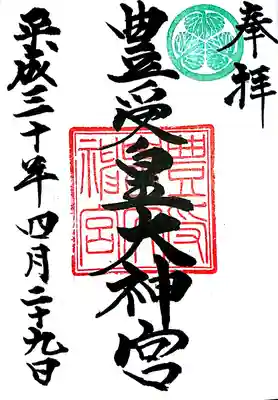 奉拝
豊受皇大神宮
豊受
神宮
平成三十年四月二十九日